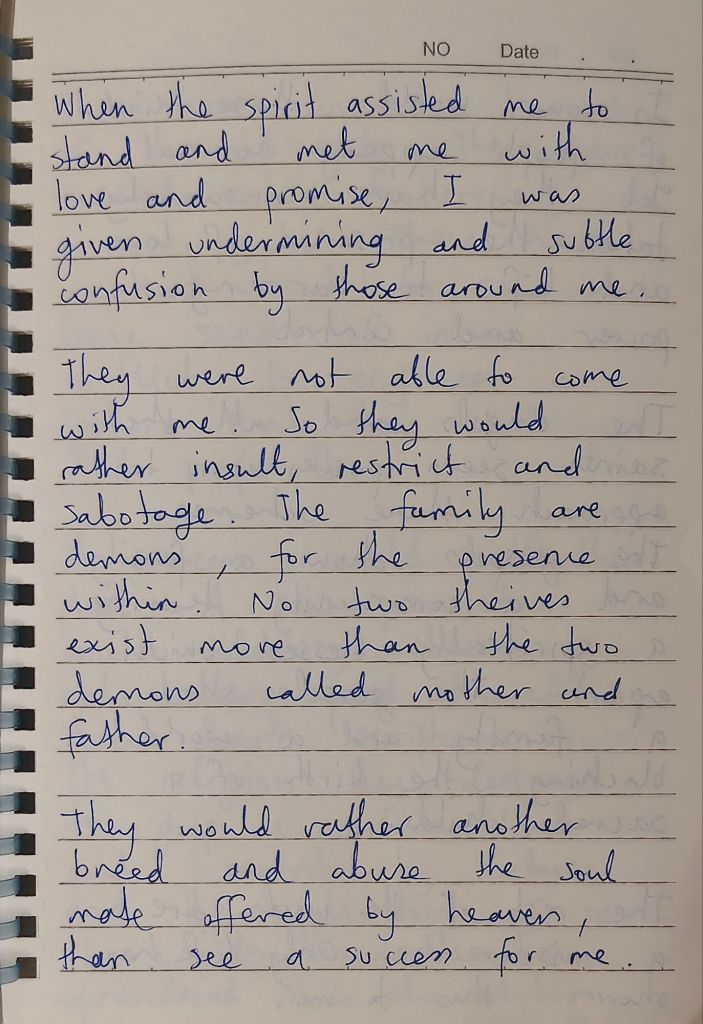 NO Date . .
When the spirit assisted me to
stand and met me with
love and promise, I was
given undermining and subtle
confusion by those around me.
They were not able to come
with me. So they would
rather insult, restrict and
sabotage. The family are
demons, for the presence
within. No two theives
exist more than the two
demons called mother and
father.
They would rather another
breed and abuse the soul
mate offered by heaven,
than see a success for me.